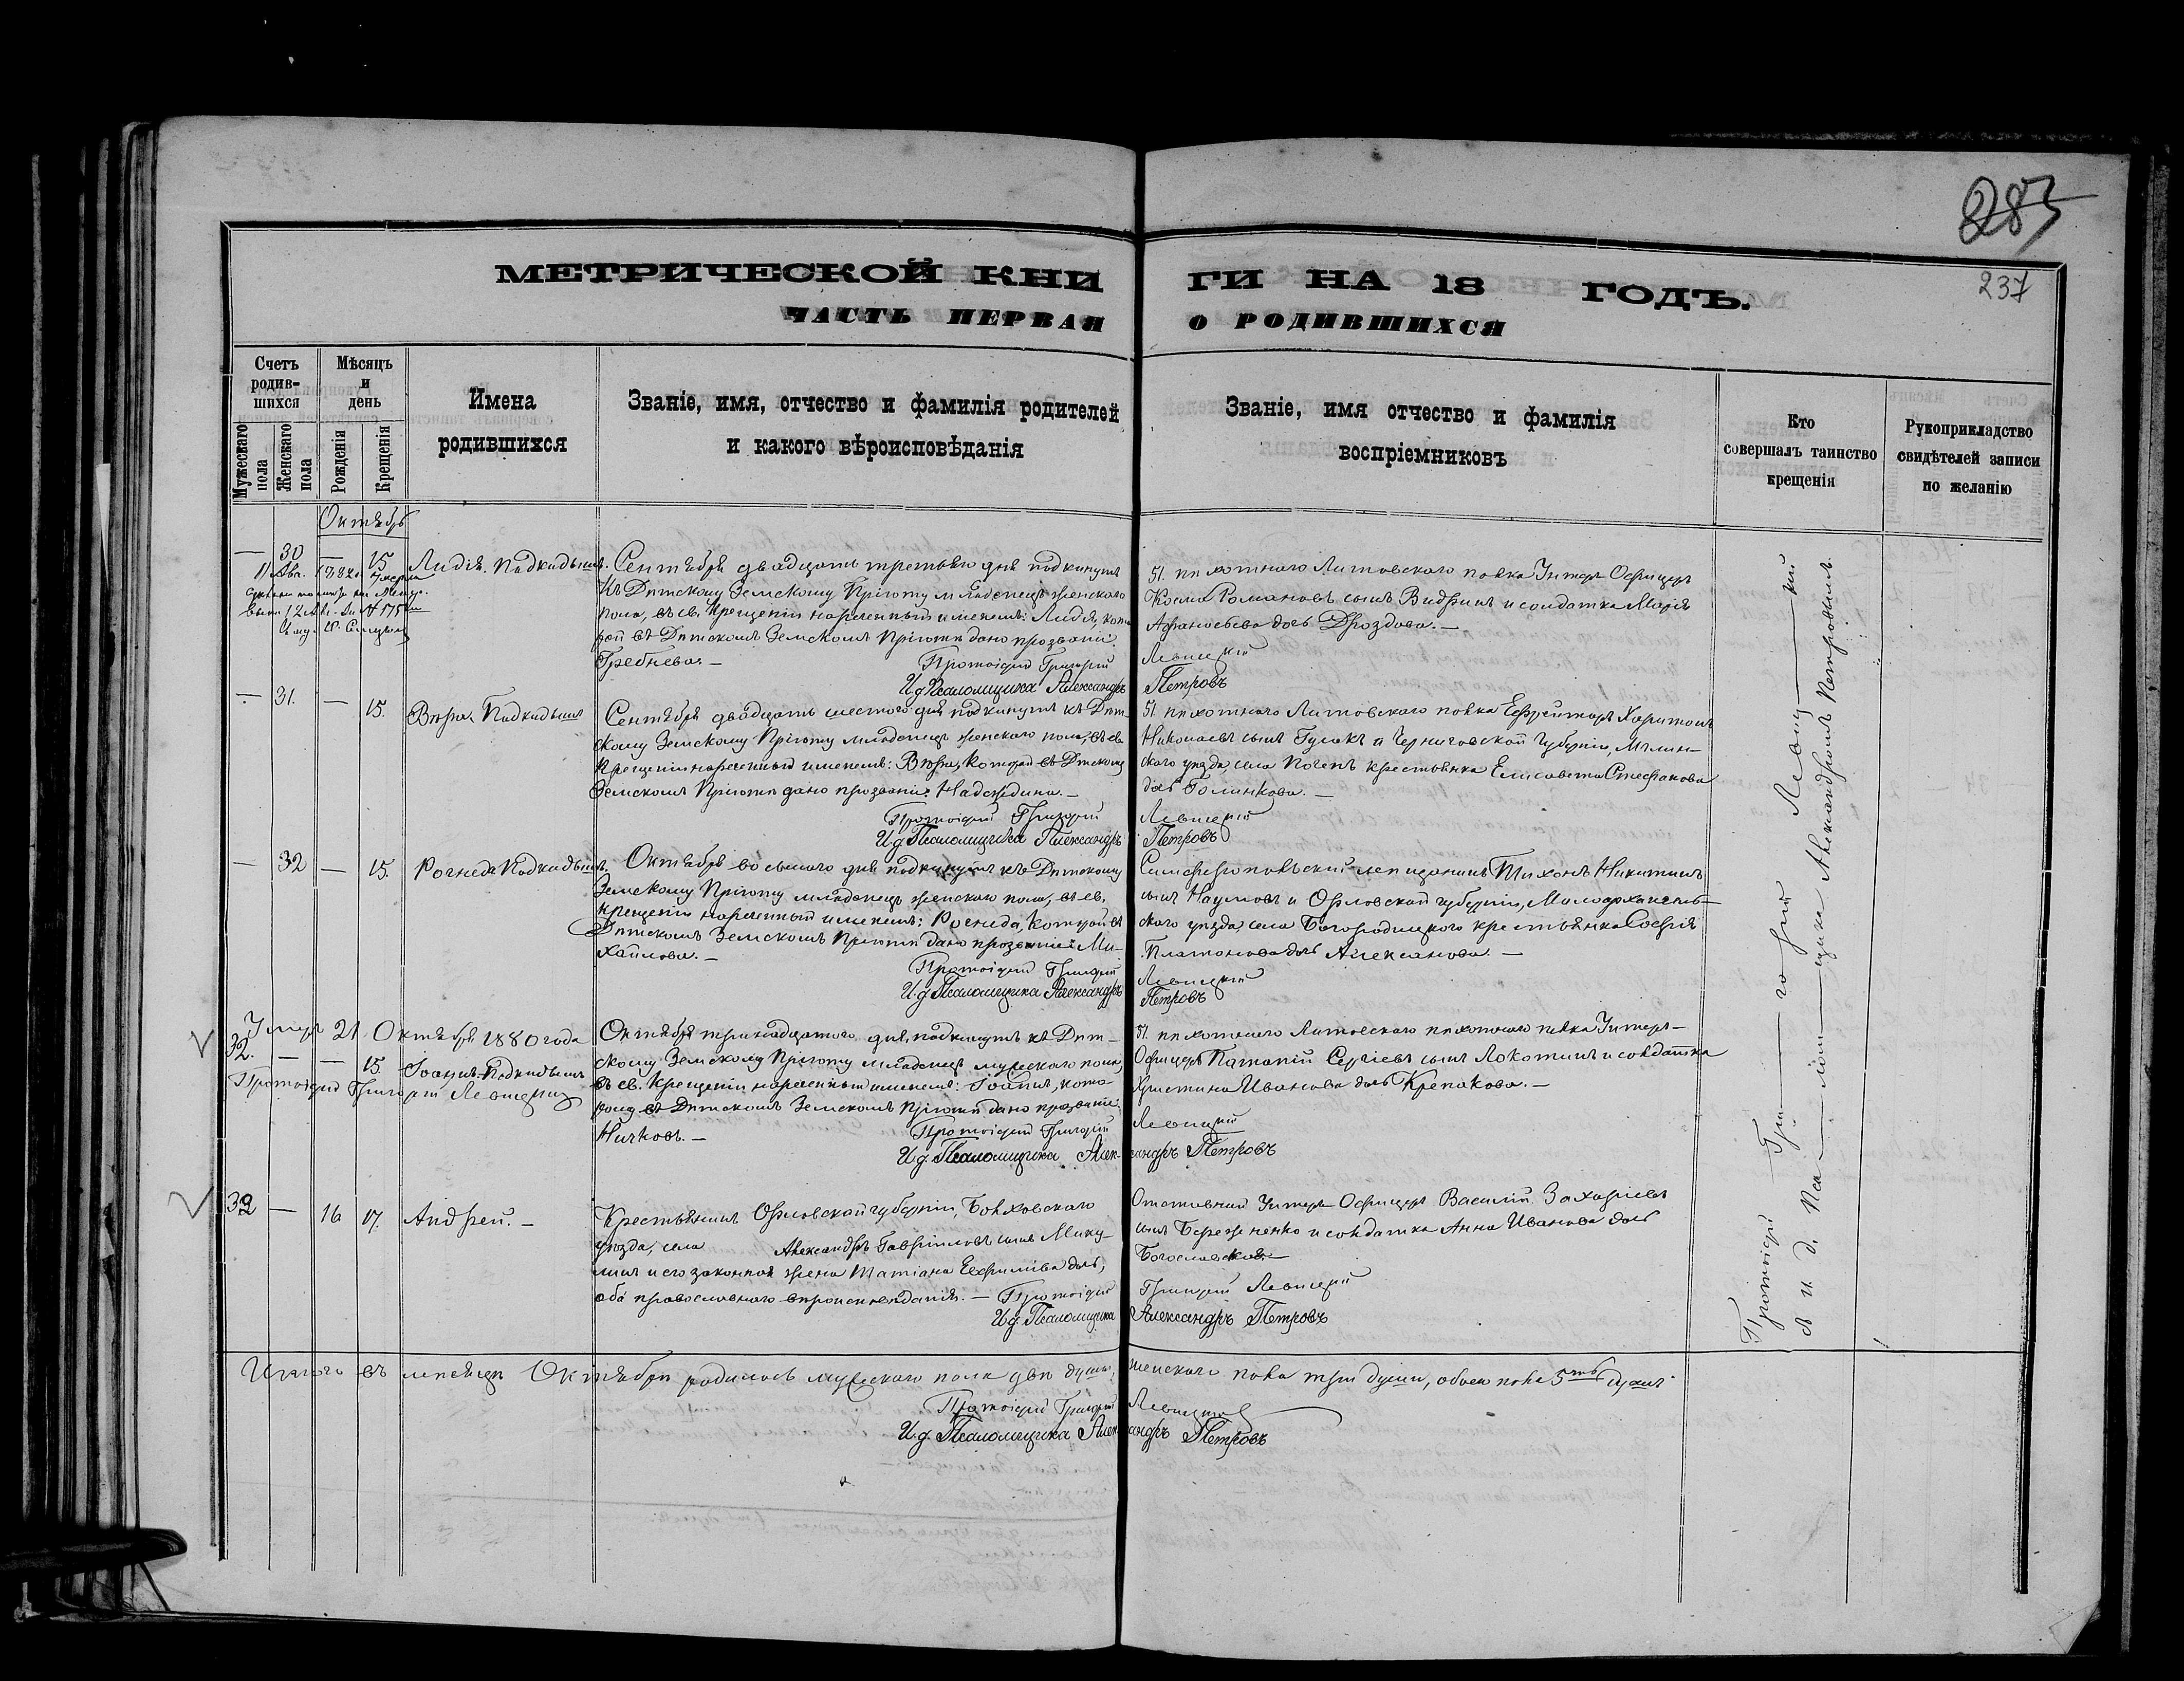 285
237
МЕТРИЧЕСКОЙ КНИ ГИ НА 18 ГОДЪ.
ЧАСТЬ ПЕРВАЯ О РОДИВШИХСЯ
Счетъ родив- шихся
Мужескаго пола
Женскаго пола
Мѣсяцъ и день
Рожденія
Крещенія
Имена родившихся
Званіе, имя, отчество и фамилія родителей
и какого вѣроисповѣданія
Званіе, имя отчество и фамилія
воспріемниковъ
Кто
совершалъ таинство
крещенія
Рукоприкладство
свидѣтелей записи
по желанію
Октябрь
— 30 — 15 Лидія. Подкидышъ.
Сентября двадцать третьяго дня подкинутъ
къ Дѣтскому Земскому Пріюту младенецъ женскаго
пола, въ св. Крещеніи нареченный именемъ: Лидія, кото
рой въ Дѣтскомъ Земскомъ Пріютѣ дано прозваніе
Гребнева. —
Протоіерей Григорій Левицкій
И. д. Псаломщика Александръ Петровъ
51. пѣхотнаго Литовскаго полка Унтеръ-Офицеръ
Косма Романовъ сынъ Видринъ и солдатка Марія
Афанасьева дочь Дроздова. —
— 31. — 15. Вѣра, Подкидышъ
Сентября двадцать шестого дня подкинутъ къ Дѣт-
скому Земскому Пріюту младенецъ женскаго пола, въ св.
Крещеніи нареченный именемъ: Вѣра, которой въ Дѣтскомъ
Земскомъ Пріютѣ дано прозваніе Надеждина. —
Протоіерей Григорій Левицкій
И. д. Псаломщика Александръ Петровъ
51. пѣхотнаго Литовскаго полка Ефрейторъ Харитонъ
Николаевъ сынъ Гусакъ и Черниговской губерніи, Мглин-
скаго уѣзда, села Почепъ крестьянка Елисавета Стефанова
дочь Голинкова. —
— 32 — 15. Рогнеда Подкидышъ.
Октября восьмого дня подкинутъ къ Дѣтскому
Земскому Пріюту младенецъ женскаго пола, въ св.
крещеніи нареченный именемъ: Рогнеда, которой въ
Дѣтскомъ Земскомъ Пріютѣ дано прозваніе Ми-
хайлова. —
Протоіерей Григорій Левицкій
И. д. Псаломщика Александръ Петровъ
Симферопольскій мѣщанинъ Тихонъ Никитинъ
сынъ Наумовъ и Орловской губерніи, Малоархангель-
скаго уѣзда, села Богородицкаго крестьянка Софія
Платонова дочь Алексанова. —
Умеръ 21 Октября 1880 года
32. — — 15. Іоаннъ-Подкидышъ
Протоіерей Григорій Левицкій
Октября тринадцатаго дня, подкинутъ къ Дѣт-
скому Земскому Пріюту младенецъ мужескаго пола,
въ св. Крещеніи нареченный именемъ: Іоаннъ, кото-
рому въ Дѣтскомъ Земскомъ Пріютѣ дано прозваніе
Ничковъ. —
Протоіерей Григорій Левицкій
И. д. Псаломщика Александръ Петровъ
51. пѣхотнаго Литовскаго пѣхотнаго полка Унтеръ-
Офицеръ Патапій Сергіевъ сынъ Локотинъ и солдатка
Христина Иванова дочь Крепакова. —
33 — 16 17. Андрей. —
Крестьянинъ Орловской губерніи, Болховскаго
уѣзда, села Александръ Гавриловъ сынъ Мику-
линъ и его законная жена Татіана Евфиміева дочь,
оба православнаго вѣроисповѣданія. — Протоіерей Григорій Левицкій
И. д. Псаломщика Александръ Петровъ
Отставной Унтеръ-Офицеръ Василій Захаріевъ
сынъ Бережненко и солдатка Анна Иванова дочь
Богословская
Протоіерей Григорій Левицкій
съ и. д. Псаломщика Александромъ Петровымъ.
Итого въ мѣсяцѣ Октябрѣ родилось мужескаго пола двѣ души, женскаго пола три души, обоего пола 5ть душъ
Протоіерей Григорій Левицкій
И. д. Псаломщика Александръ Петровъ